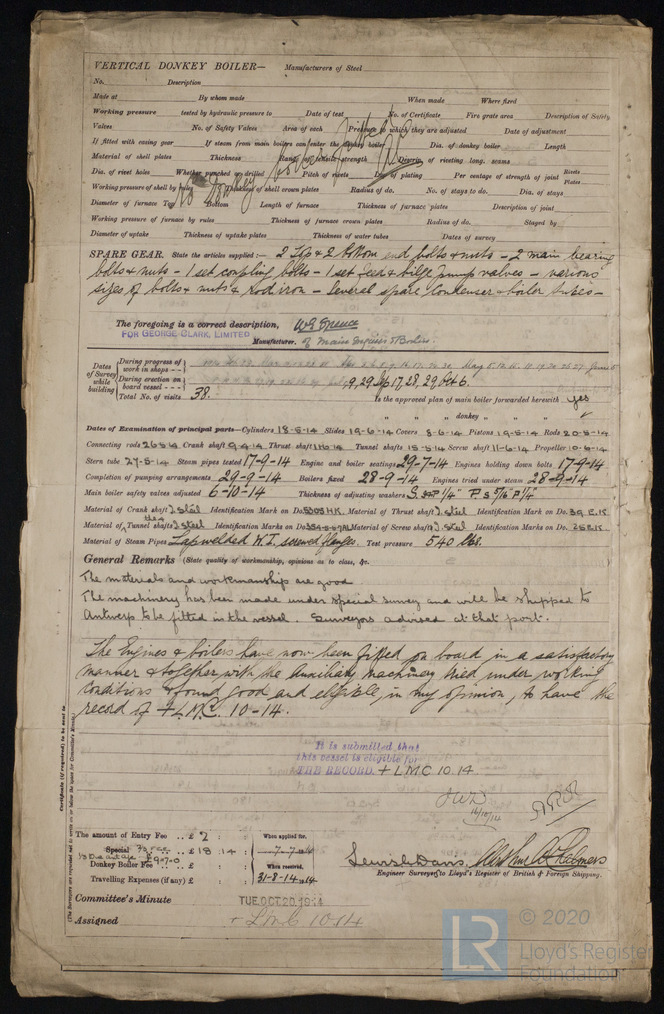 VERTICAL DONKEY BOILER— Manufacturers of Steel
No. Description
Made at By whom made When made Where fixed
Working pressure tested by hydraulic pressure to Date of test No. of Certificate Fire grate area Description of Safety
Valves No. of Safety Valves Area of each Pressure to which they are adjusted Date of adjustment
If fitted with easing gear If steam from main boilers can enter the donkey boiler Dia. of donkey boiler Length
Material of shell plates Thickness Range of tensile strength Descrip. of riveting long. seams
Dia. of rivet holes Whether punched or drilled Pitch of rivets Lap of plating Per centage of strength of joint Rivets Plates
Working pressure of shell by rules Thickness of shell crown plates Radius of do. No. of stays to do. Dia. of stays
Diameter of furnace Top Bottom Length of furnace Thickness of furnace plates Description of joint
Working pressure of furnace by rules Thickness of furnace crown plates Radius of do. Stayed by
Diameter of uptake Thickness of uptake plates Thickness of water tubes Dates of survey
No Donkey Boiler fitted
SPARE GEAR. State the articles supplied :— 2 Top & 2 Bottom end bolts & nuts – 2 main bearing
bolts & nuts – 1 set coupling bolts – 1 set feed & bilge pump valves – various
sizes of bolts & nuts & rod iron – Several spare condenser & boiler tubes –
The foregoing is a correct description,
FOR GEORGE CLARK, LIMITED
Manufacturer. of Main Engines & Boilers.
Dates of Survey while building
During progress of work in shops - -
During erection on board vessel - - - 29, 17, 28, 29, Oct 6.
Total No. of visits 38. Is the approved plan of main boiler forwarded herewith yes
" " " donkey " " "
Dates of Examination of principal parts—Cylinders 18-5-14 Slides 19-6-14 Covers 8-6-14 Pistons 19-5-14 Rods 20-5-14
Connecting rods 26-5-14 Crank shaft 9-4-14 Thrust shaft 11-6-14 Tunnel shafts 15-5-14 Screw shaft 11-6-14 Propeller 10-6-14
Stern tube 27-5-14 Steam pipes tested 17-9-14 Engine and boiler seatings 29-7-14 Engines holding down bolts 17-9-14
Completion of pumping arrangements 29-9-14 Boilers fixed 28-9-14 Engines tried under steam 28-9-14
Main boiler safety valves adjusted 6-10-14 Thickness of adjusting washers
Material of Crank shaft I. steel Identification Mark on Do. Material of Thrust shaft I. steel Identification Mark on Do. 39 E.K
Material of Tunnel shafts I. steel Identification Marks on Do. Material of Screw shafts I. steel Identification Marks on Do. 25 E.K
Material of Steam Pipes Lapwelded W.I. screwed flanges. Test pressure 540 lbs.
General Remarks (State quality of workmanship, opinions as to class, &c.
The materials and workmanship are good
The machinery has been made under special survey and will be shipped to
Antwerp to be fitted in the vessel. Surveyors advised at that port.
The Engines & boilers have now been fitted on board in a satisfactory
manner & together with the Auxiliary machinery tried under working
conditions & found good and eligible, in my opinion, to have the
record of + L.M.C. 10-14.
Certificate (if required) to be sent to
(The Surveyors are requested not to write on or below the space for Committee's Minute.)
It is submitted that
this vessel is eligible for
THE RECORD. + LMC 10.14
16/10/14
The amount of Entry Fee .. £ 2 : : When applied for,
Special .. £ 18 : 14 : 7-7-14
Donkey Boiler Fee .. £ : : When received,
Travelling Expenses (if any) £ : : 31-8-14
Engineer Surveyors to Lloyd's Register of British & Foreign Shipping.
Committee's Minute TUE. OCT. 20. 1914
Assigned + LMC 10.14
LR © 2020
Lloyd's Register
Foundation